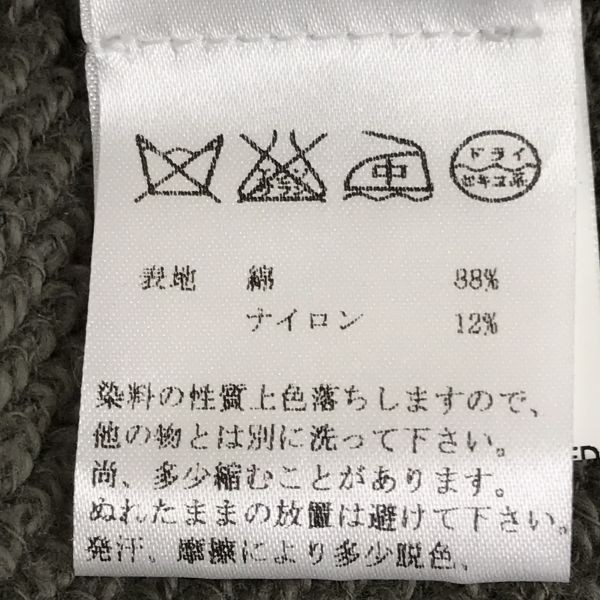 中
ドライ
セキユ系
表地 綿 88%
ナイロン 12%
染料の性質上色落ちしますので、
他の物とは別に洗って下さい。
尚、多少縮むことがあります。
ぬれたままの放置は避けて下さい。
発汗、摩擦により多少脱色、